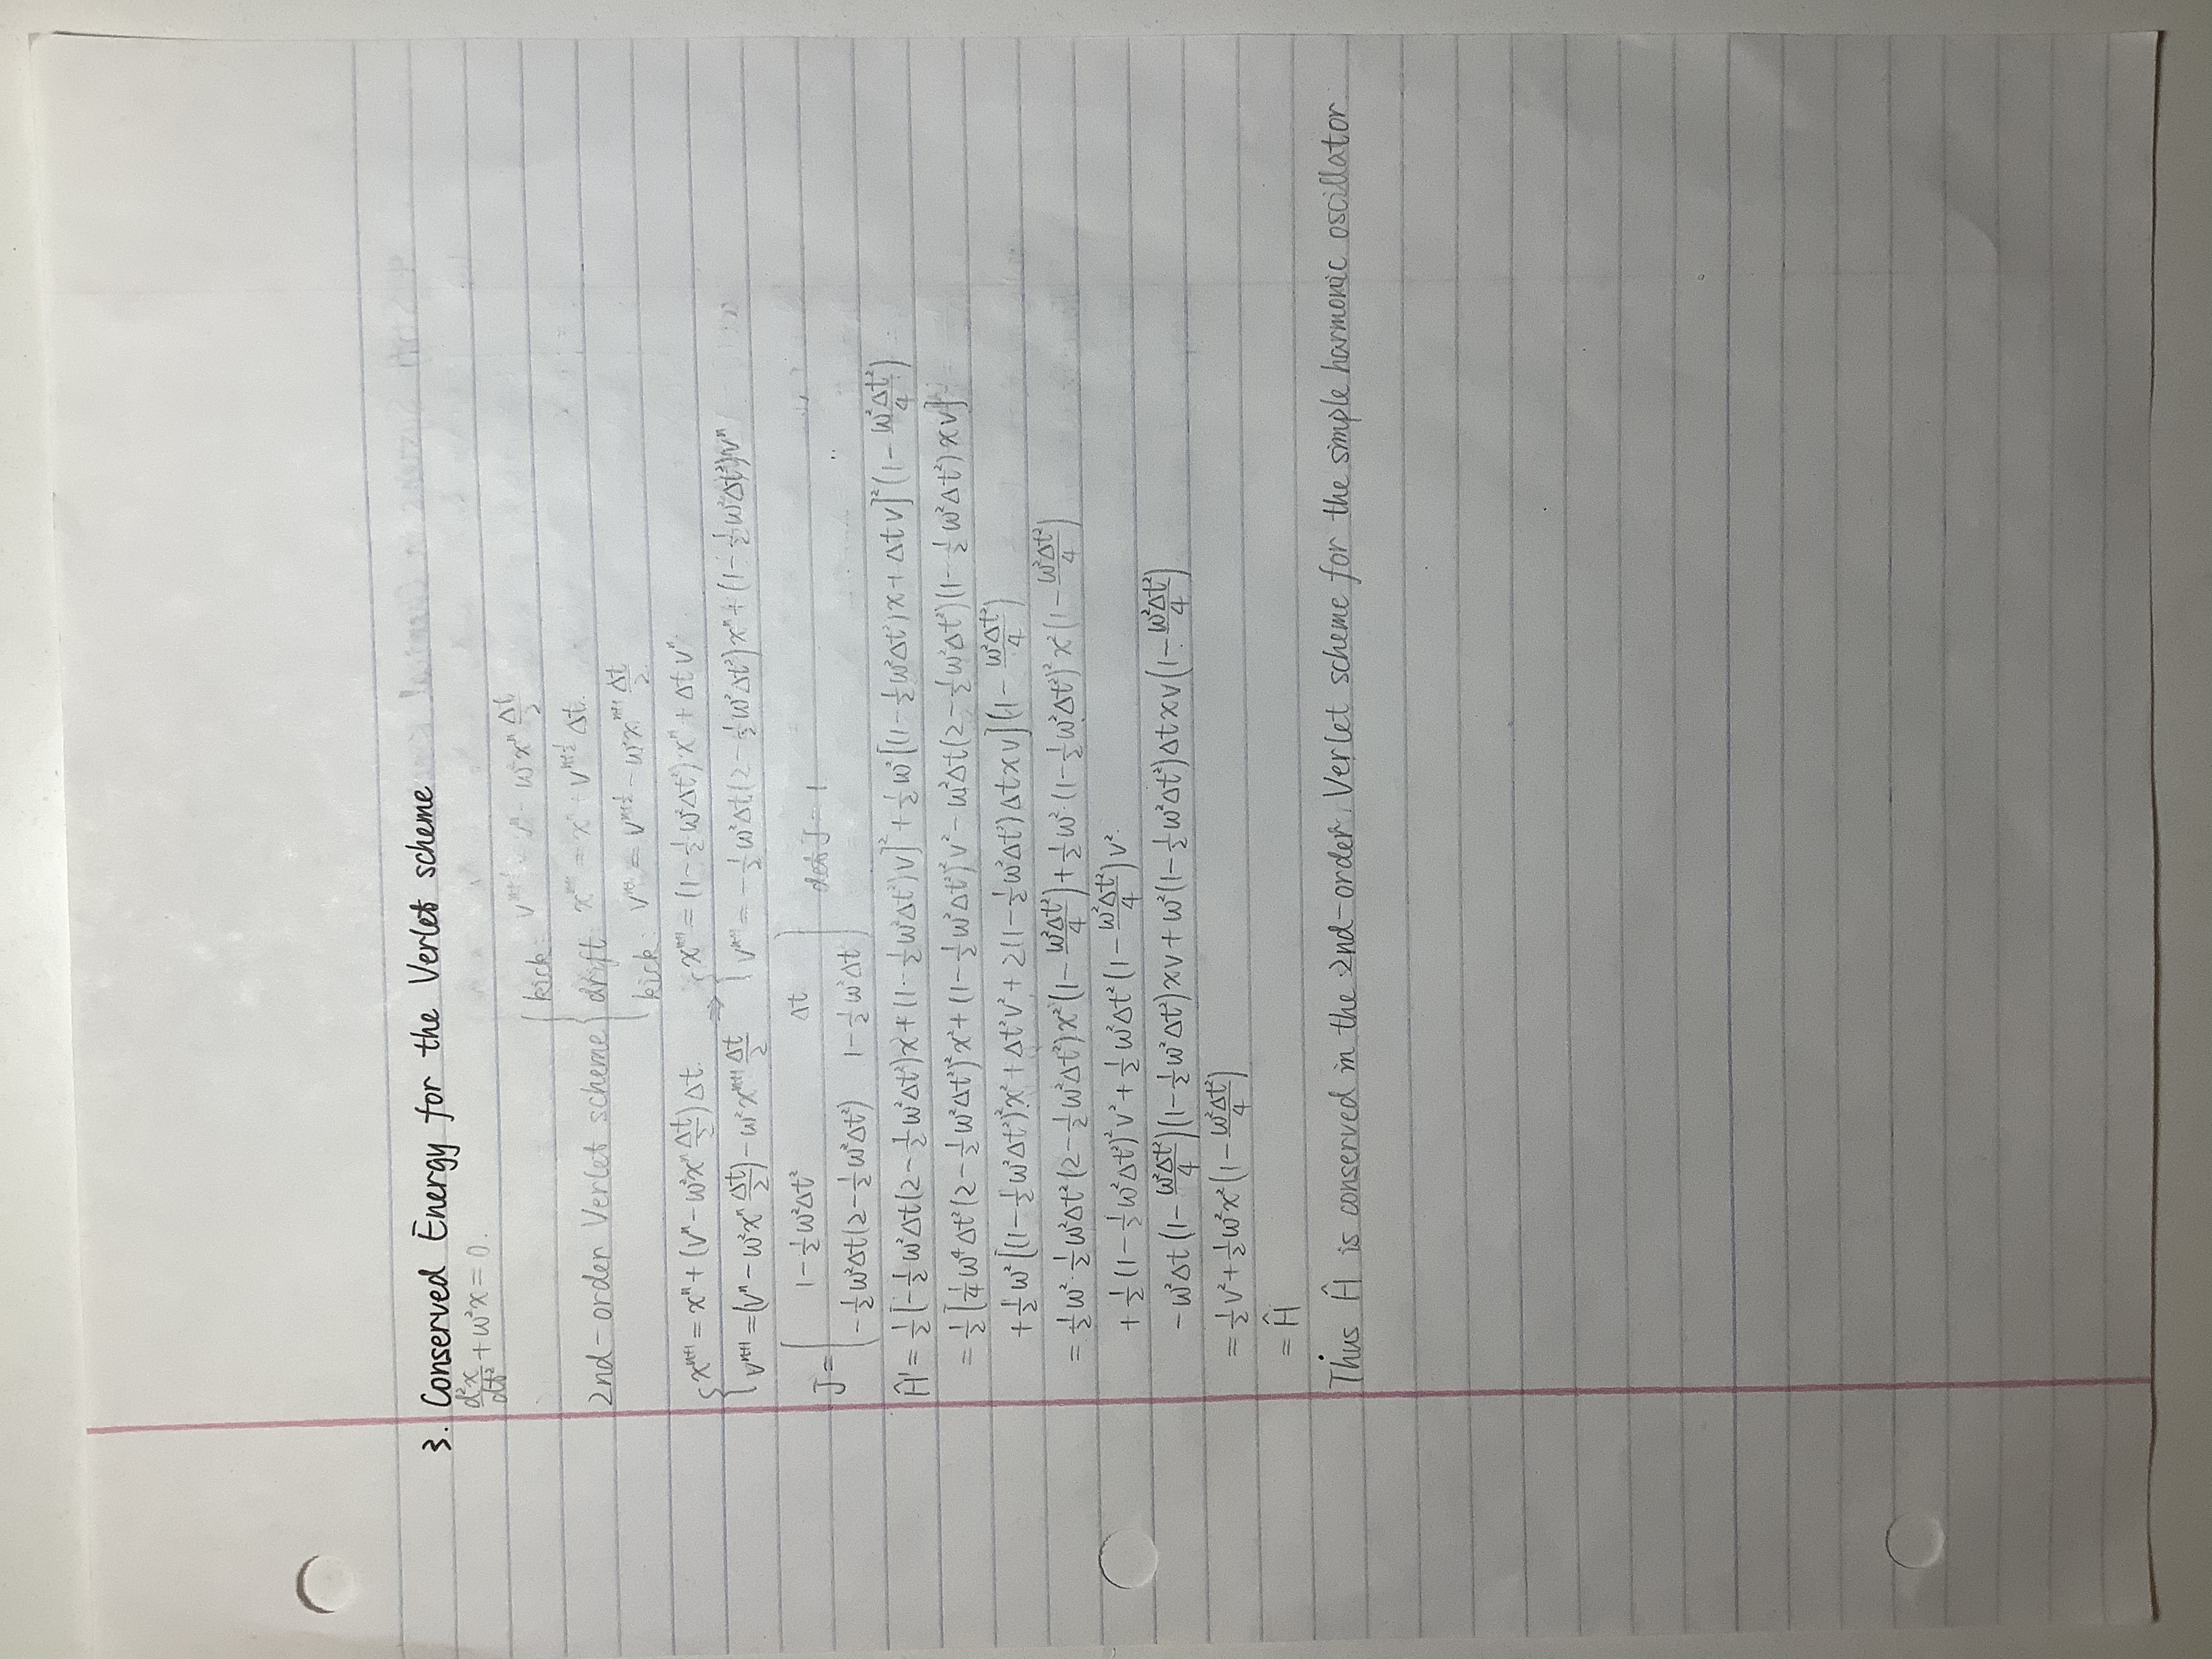 3. Conserved Energy for the Verlet scheme
d²x/dt² + ω²x = 0.
kick: vⁿ⁺¹/² = vⁿ - ω²xⁿ Δt/2
2nd-order Verlet scheme { drift: xⁿ⁺¹ = xⁿ + vⁿ⁺¹/² Δt.
kick: vⁿ⁺¹ = vⁿ⁺¹/² - ω²xⁿ⁺¹ Δt/2
{ xⁿ⁺¹ = xⁿ + (vⁿ - ω²xⁿ Δt/2)Δt. ⇒ { xⁿ⁺¹ = (1 - ½ω²Δt²)xⁿ + Δt vⁿ
vⁿ⁺¹ = (vⁿ - ω²xⁿ Δt/2) - ω²xⁿ⁺¹ Δt/2 vⁿ⁺¹ = -½ω²Δt(2 - ½ω²Δt²)xⁿ + (1 - ½ω²Δt²)vⁿ
J = ( 1 - ½ω²Δt² Δt ) det J = 1
-½ω²Δt(2 - ½ω²Δt²) 1 - ½ω²Δt
Ĥ' = ½[-½ω²Δt(2 - ½ω²Δt²)x + (1 - ½ω²Δt²)v]² + ½ω²[(1 - ½ω²Δt²)x + Δt v]²(1 - ω²Δt²/4)
= ½[¼ω⁴Δt²(2 - ½ω²Δt²)²x² + (1 - ½ω²Δt²)²v² - ω²Δt(2 - ½ω²Δt²)(1 - ½ω²Δt²)xv]
+ ½ω²[(1 - ½ω²Δt²)²x² + Δt²v² + 2(1 - ½ω²Δt²)Δt xv](1 - ω²Δt²/4)
= ½ω²·½ω²Δt²(2 - ½ω²Δt²)x²(1 - ω²Δt²/4) + ½ω²·(1 - ½ω²Δt²)²x²(1 - ω²Δt²/4)
+ ½(1 - ½ω²Δt²)²v² + ½ω²Δt²(1 - ω²Δt²/4)v².
- ω²Δt(1 - ω²Δt²/4)(1 - ½ω²Δt²)xv + ω²(1 - ½ω²Δt²)Δt xv(1 - ω²Δt²/4)
= ½v² + ½ω²x²(1 - ω²Δt²/4)
= Ĥ
Thus Ĥ is conserved in the 2nd-order Verlet scheme for the simple harmonic oscillator.